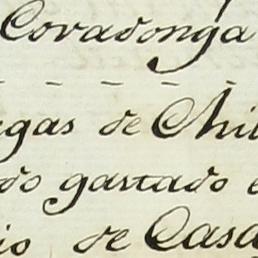 Coradonga
egas de Chil
do gastado e
io de Casa